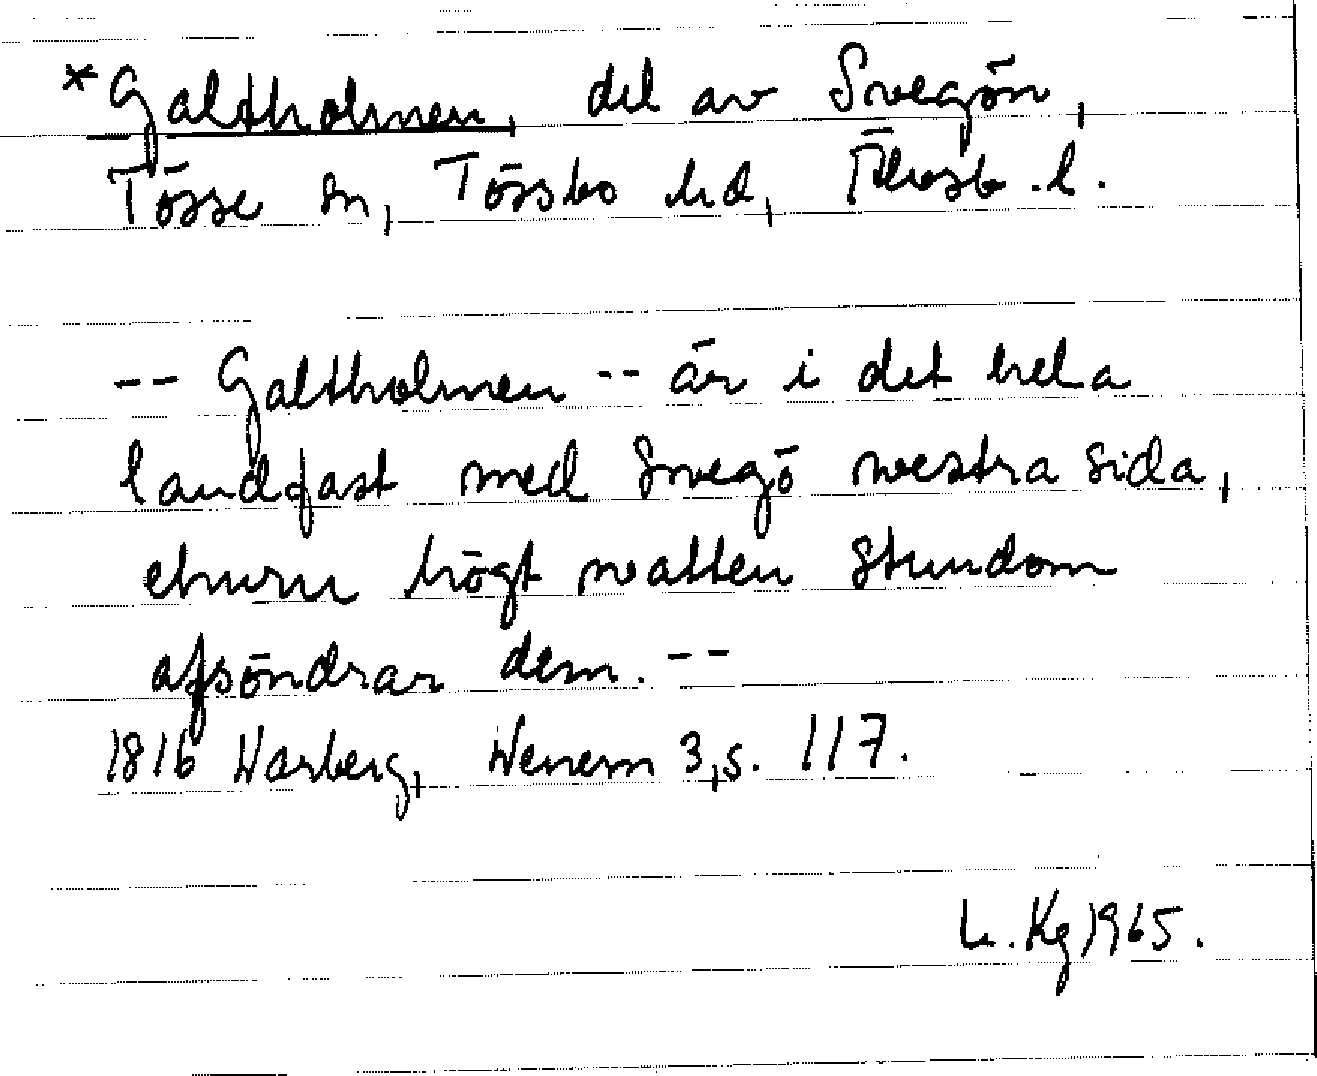 *Galtholmen, del av Svegön,
Tösse sn, Tössbo hd, Älvsb. l.
-- Galtholmen -- är i det hela
landfast med Svegö westra sida,
ehuru högt watten stundom
afsöndrar dem. --
1816 Warberg, Wenern 3, s. 117.
L. Kg 1965.